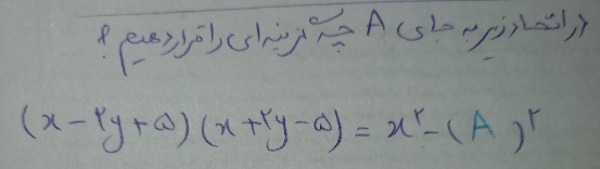 در اتحاد زیر به جای A چه گزینه‌ای را قرار دهیم؟
(x - ۲y + ۵) (x + ۲y - ۵) = x^۲ - ( A )^۲